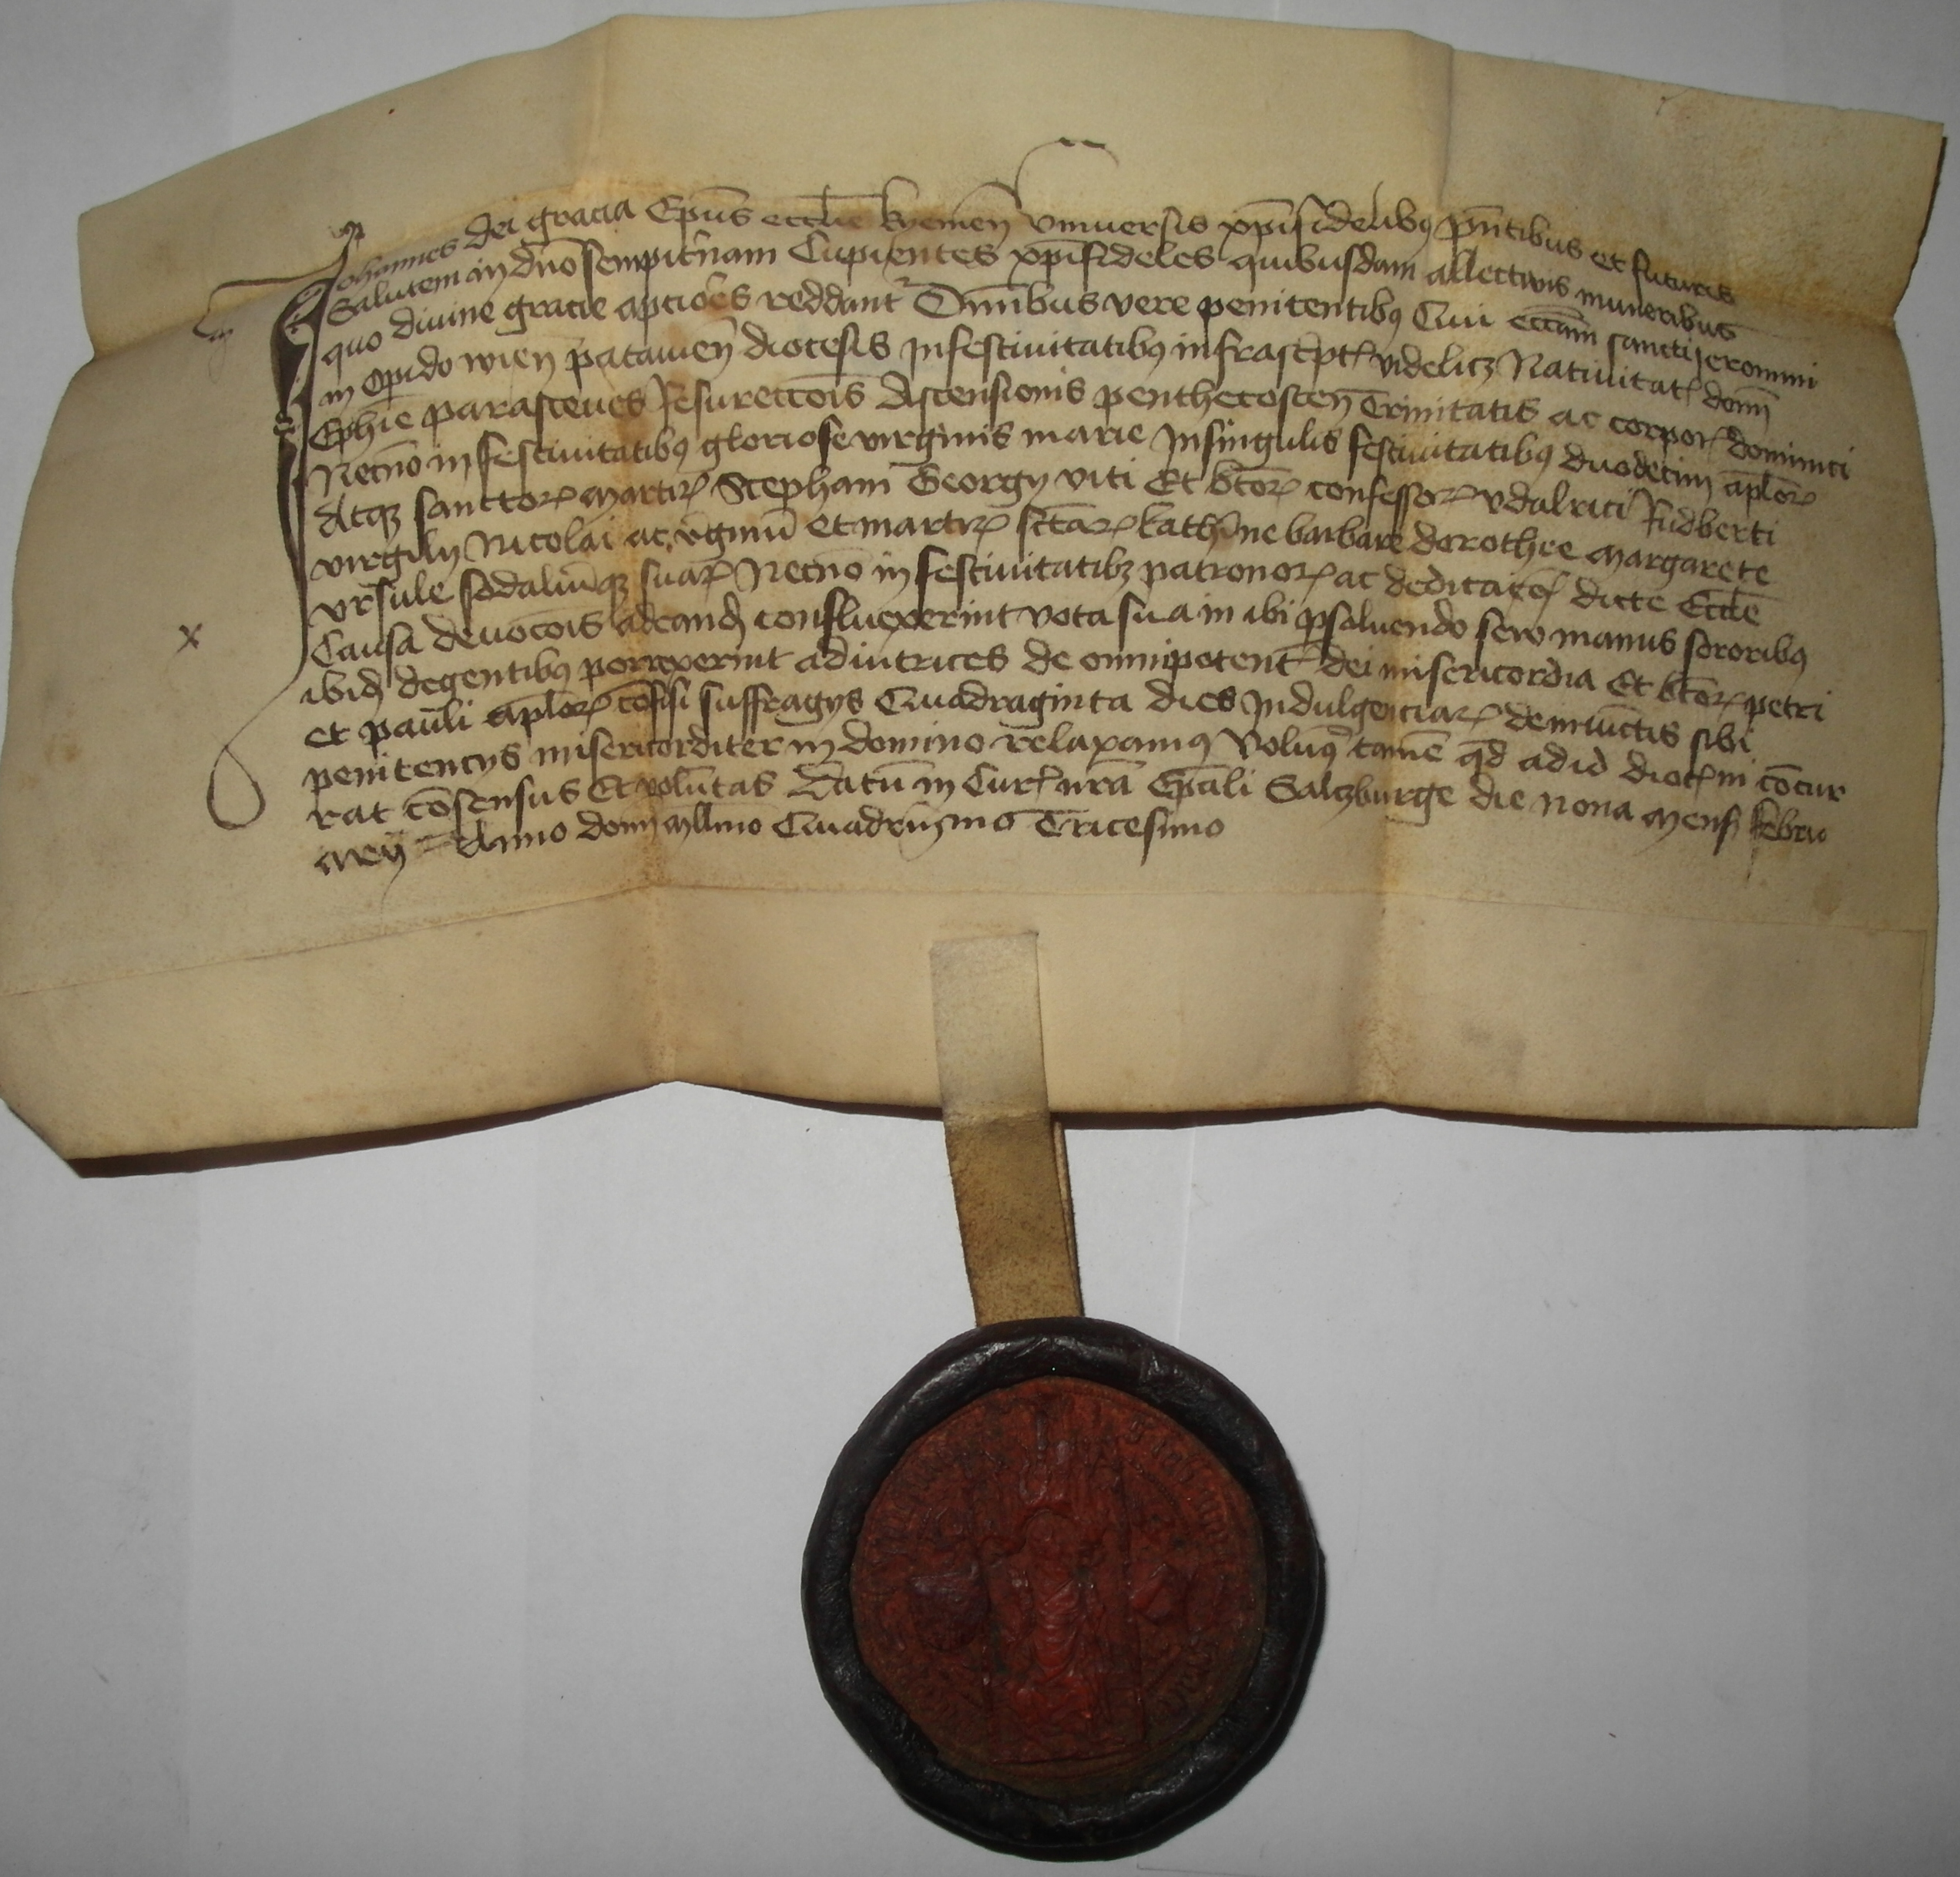 Johannes dei gracia Ep̄us eccl̄ie kyemen̄ vniuersis xp̄ifidelibꝯ p̄ntibus et futuris
Salutem in dn̄o sempit̄nam Cupientes xp̄ifideles quibusdam allectiuis muneribus
quo diuine gracie apcio᷑es reddant᷑ Om̄ibus vere penitentibꝯ Qui eccām sancti jeronimi
in opido wien̄ patauien̄ diocesis In festiuitatibꝯ infrascpt᷑ videlicꝫ Natiuitat᷑ domī
Ephīe parasceues Resurecco᷑is Ascensionis penthecosten̄ Trinitatis ac corpor᷑ dominici
Necnō in festiuitatibꝯ gloriose virginis marie In singulis festiuitatibꝯ duodecim ap̄loꝝ
Atqꝫ sanctoꝝ martiꝝ Stephani Georgij viti Et bt̄oꝝ confessoꝝ vdalrici Rudberti
virgilij Nicolai ac v̄ginū et martiꝝ sct̄aꝝ kathīne barbare dorothee margarete
vrsule sodaliūqꝫ suaꝝ Necnō in festiuitatibꝫ patronoꝝ ac dedicacō᷑ dicte Eccl̄e
Causa deuoc̄ois adeand̄ confluxerint vota sua in ibi ꝑsoluendo seu manus sororibꝯ
ibid̄ degentibꝯ porrexerint adiutrices de omnipotent᷑ dei misericordia Et bt̄oꝝ petri
et pauli ap̄loꝝ cōfisi suffragijs Quadraginta dies Indulgenciaꝝ de iniūctis sibi
penitencijs misericorditer in domino relaxamꝯ Volumꝯ tamē qd̄ ad id dioc᷑ni cōcur
rat cōsensus Et volūtas Datū in Cur᷑ nr̄a Ep̄ali Salczburge die nona mens᷑ Febru
arij Anno domī mill̄mo Quadrin̄gmo Tricesimo
x